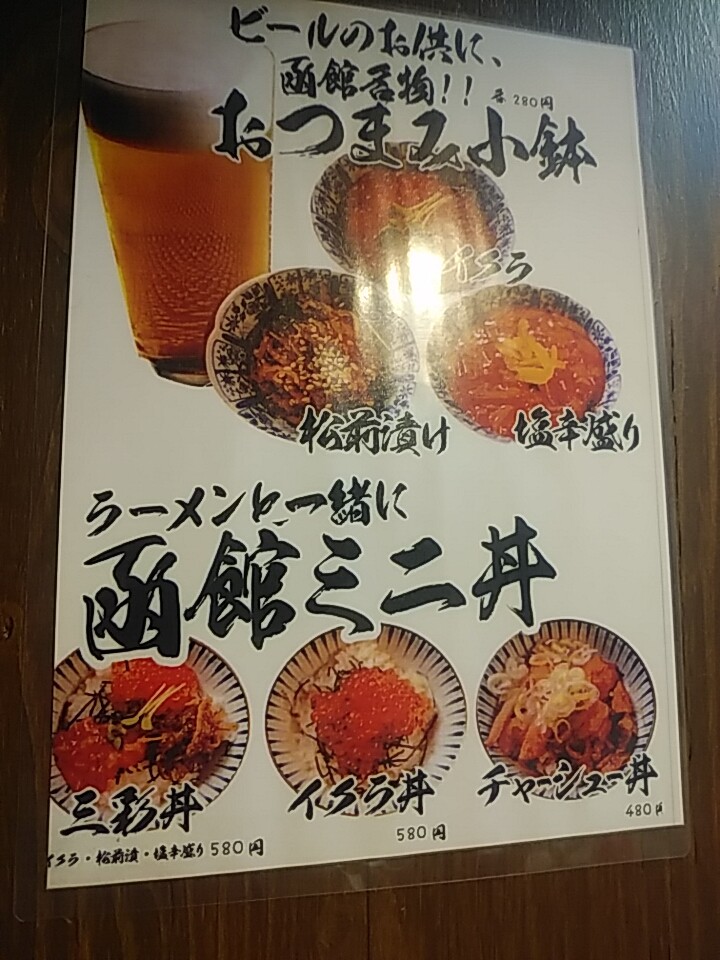 ビールのお供に、
函館名物!! 各280円
おつまみ小鉢
イクラ
松前漬け
塩辛盛り
ラーメンと一緒に
函館ミニ丼
三彩丼
イクラ・松前漬・塩辛盛り 580円
イクラ丼
580円
チャーシュー丼
480円